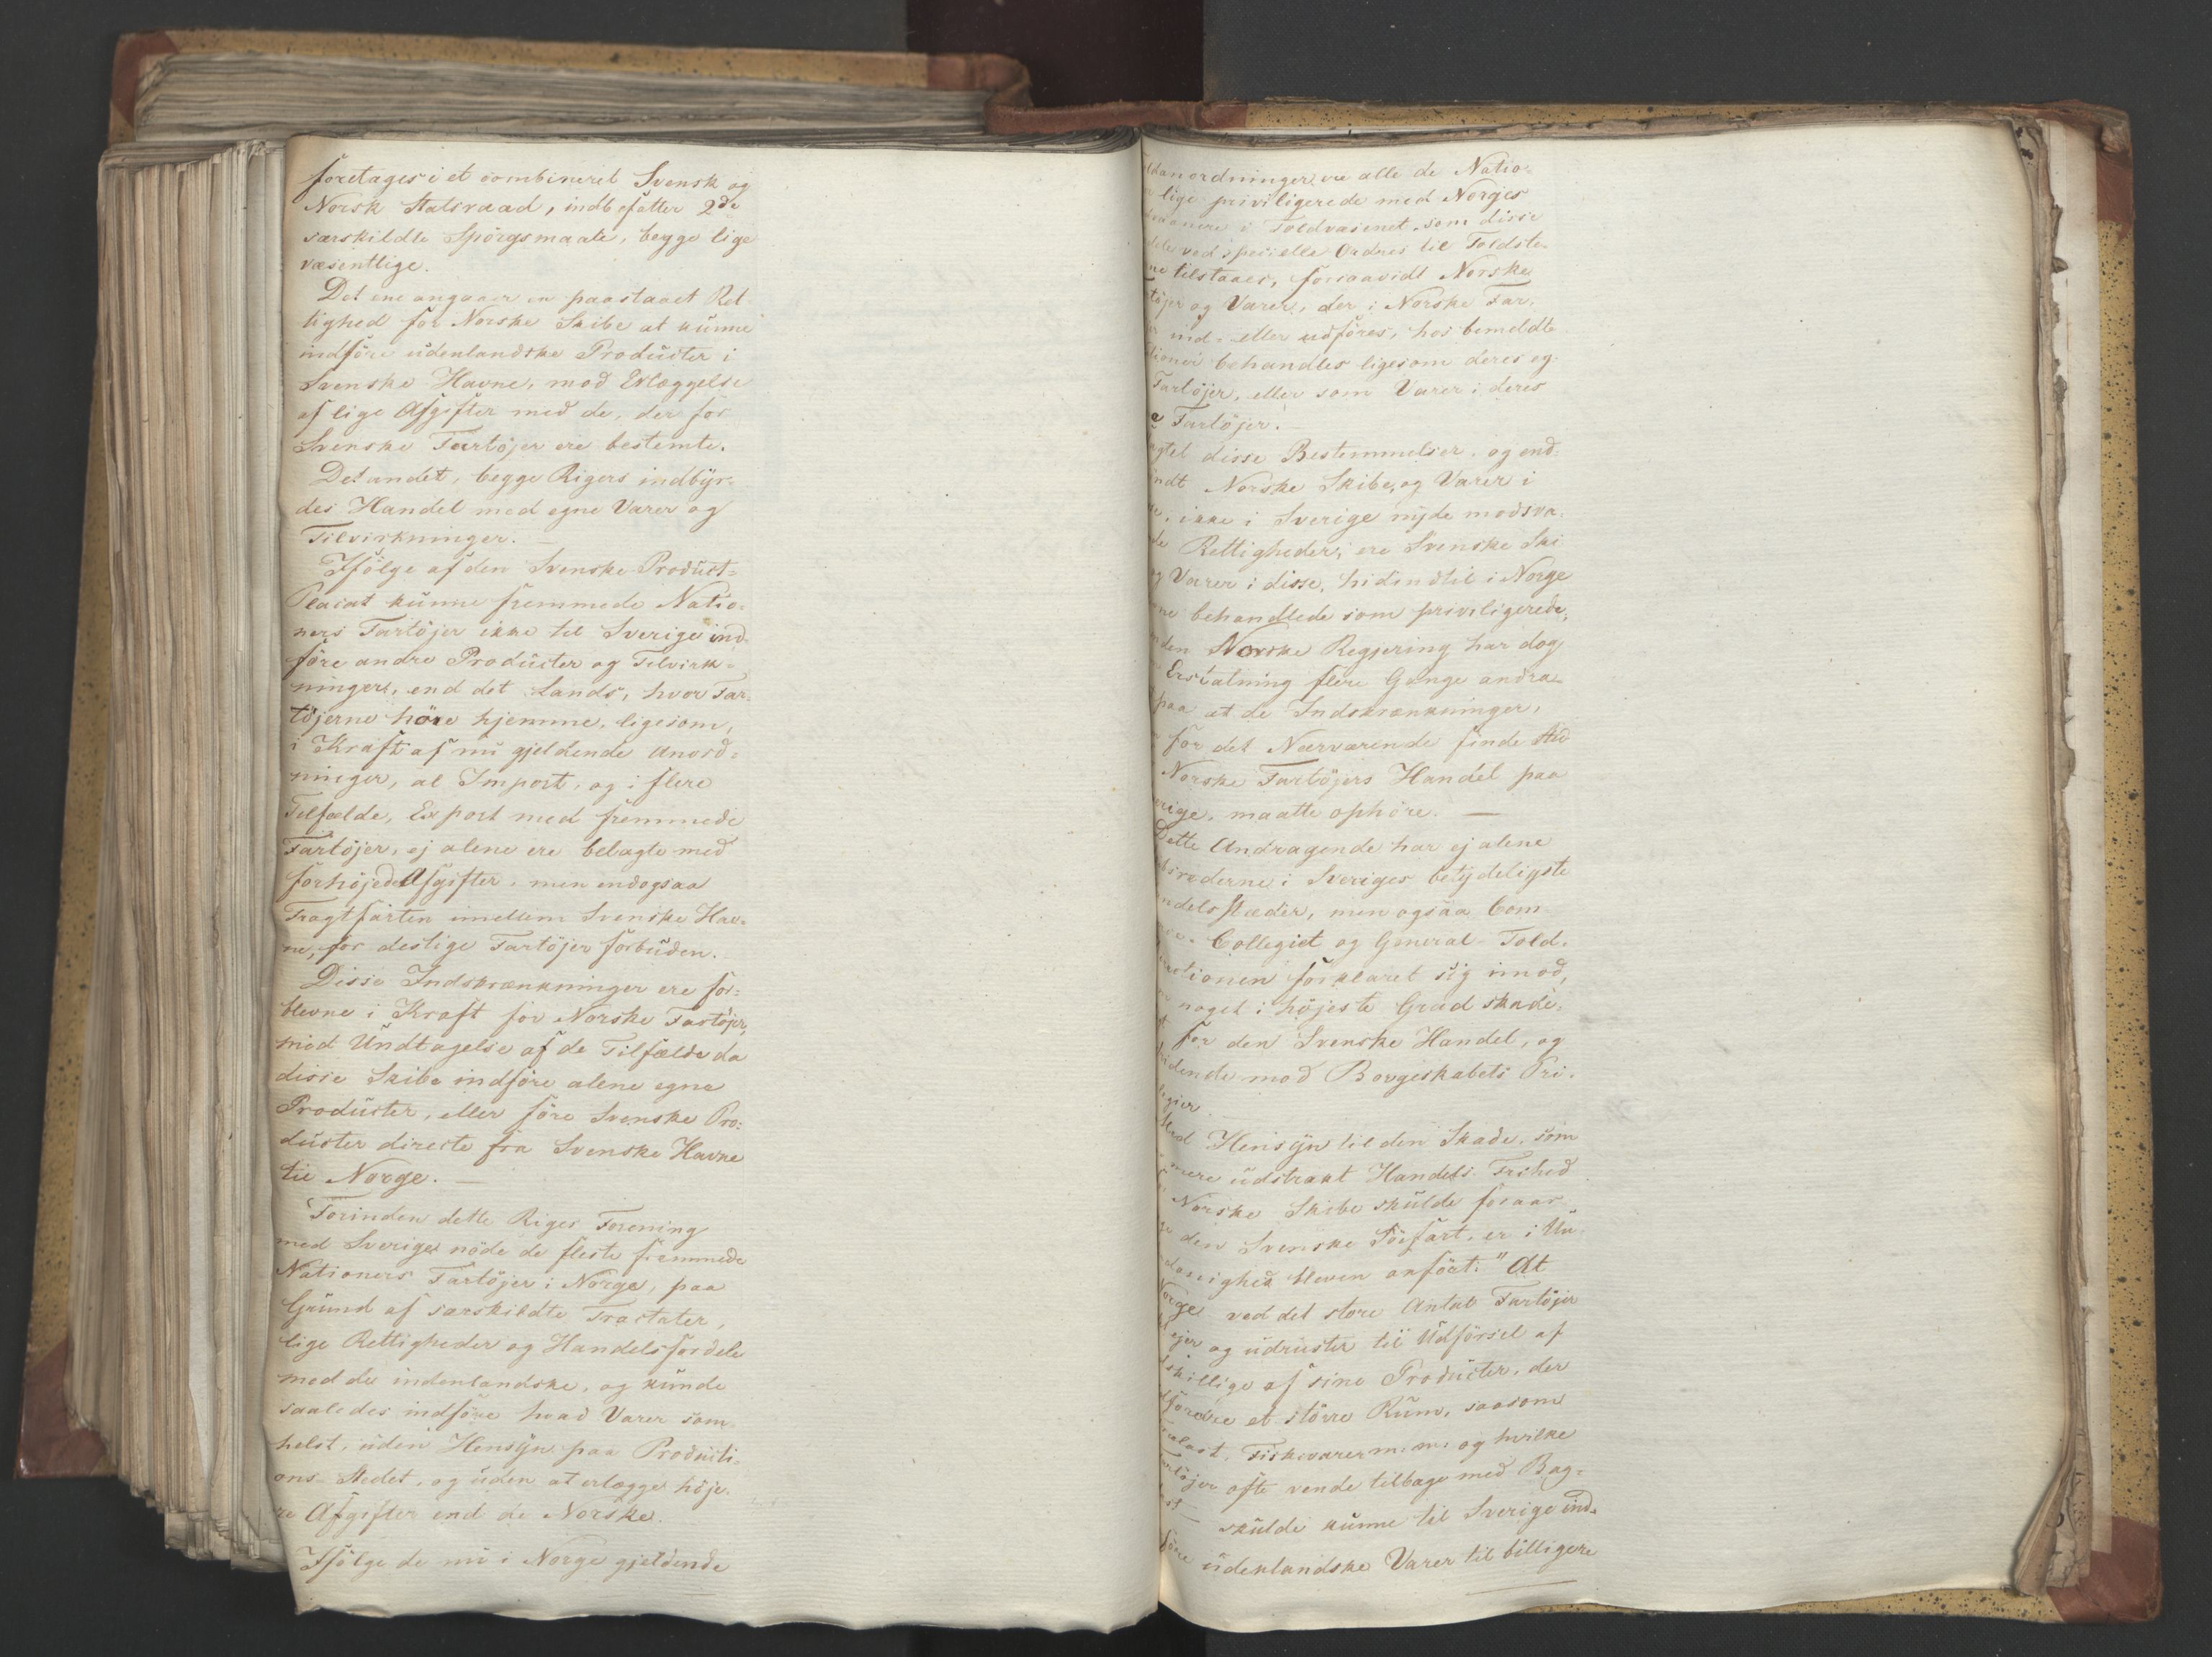 foretages i et combineret Svensk og
Norsk Statsraad, indbefatter 2de
særskildte Spörgsmaale, begge lige
væsentlige.
Det ene angaaer en paastaaet Ret-
tighed for Norske Skibe at kunne
indföre udenlandske Producter i
Svenske Havne, mod Erlæggelse
af lige Afgifter med de, der for
Svenske Fartöjer ere bestemte.
Det andet, begge Rigers indbyr-
des Handel med egne Varer og
Tilvirkninger. —
Ifölge af den Svenske Product-
Placat kunne fremmede Natio-
ners Fartöjer ikke til Sverige ind-
före andre Producter og Tilvirk-
ninger, end det Lands, hvor Far-
töjerne höre hjemme, ligesom,
i Kraft af nu gjeldende Anord-
ninger, al Import, og i flere
Tilfælde, Export med fremmede
Fartöjer, ej alene ere belagte med
forhöjede Afgifter, men endogsaa
Fragtfarten imellem Svenske Hav-
ne, for deslige Fartöjer forbuden.
Disse Indskrænkninger ere for-
blevne i Kraft for Norske Fartöjer,
med Undtagelse af de Tilfælde da
disse Skibe indföre alene egne
Producter, eller före Svenske Pro-
ducter directe fra Svenske Havne
til Norge. —
Forinden dette Riges Forening
med Sverige nöde de fleste fremmede
Nationers Fartöjer i Norge, paa
Grund af særskildte Tractater,
lige Rettigheder og Handelsfordele
med de indenlandske, og kunde
saaledes indföre hvad Varer som-
helst, uden Hensyn paa Producti-
ons-Stedet, og uden at erlægge höje-
re Afgifter end de Norske.
Ifölge de nu i Norge gjeldende
danordninger ere alle de Natio-
lige priviligerede med Norges
i Toldvæsenet, som disse
ved specielle Ordres til Toldste-
ne tilstaaes, forsaavidt Norske
töjer og Varer, der i Norske Far-
ind- eller udföres, hos bemeldte
tioner behandles ligesom deres eg-
Fartöjer, eller som Varer i deres
e Fartöjer. —
agtet disse Bestemmelser, og end-
ndt Norske Skibe, og Varer i
e, ikke i Sverige nyde modsva-
de Rettigheder, ere Svenske Ski
og Varer i disse, hidindtil i Norge
ne behandlede som priviligerede,
den Norske Regjering har dog
Erstatning flere Gange andra-
paa at de Indskrænkninger,
for det Nærværende finde Sted
Norske Fartöjers Handel paa
erige, maatte ophöre. —
Dette Andragende har ej alene
biraderne i Sveriges betydeligste
ndelsstæder, men ogsaa Com-
ce-Collegiet og General-Told-
rectionen forklaret sig imod,
noget i höjeste Grad skade-
for den Svenske Handel, og
ridende mod Borgeskabets Pri-
legier. —
Med Hensyn til den Skade, som
mere udstrakt Handels Frihed
Norske Skibe skulde foraar-
ge den Svenske Söefart, er i Un-
danighed bleven anfört: "At
Norge ved det store Antal Fartöjer
ejer og udruster til Udförsel af
skillige af sine Producter, der
dfordre et större Rum, saasom
Trælast, Fiskevarer m. m. og hvilke
artöjer ofte vende tilbage med Bag-
st — skulde kunne til Sverige ind-
före udenlandske Varer til billigere